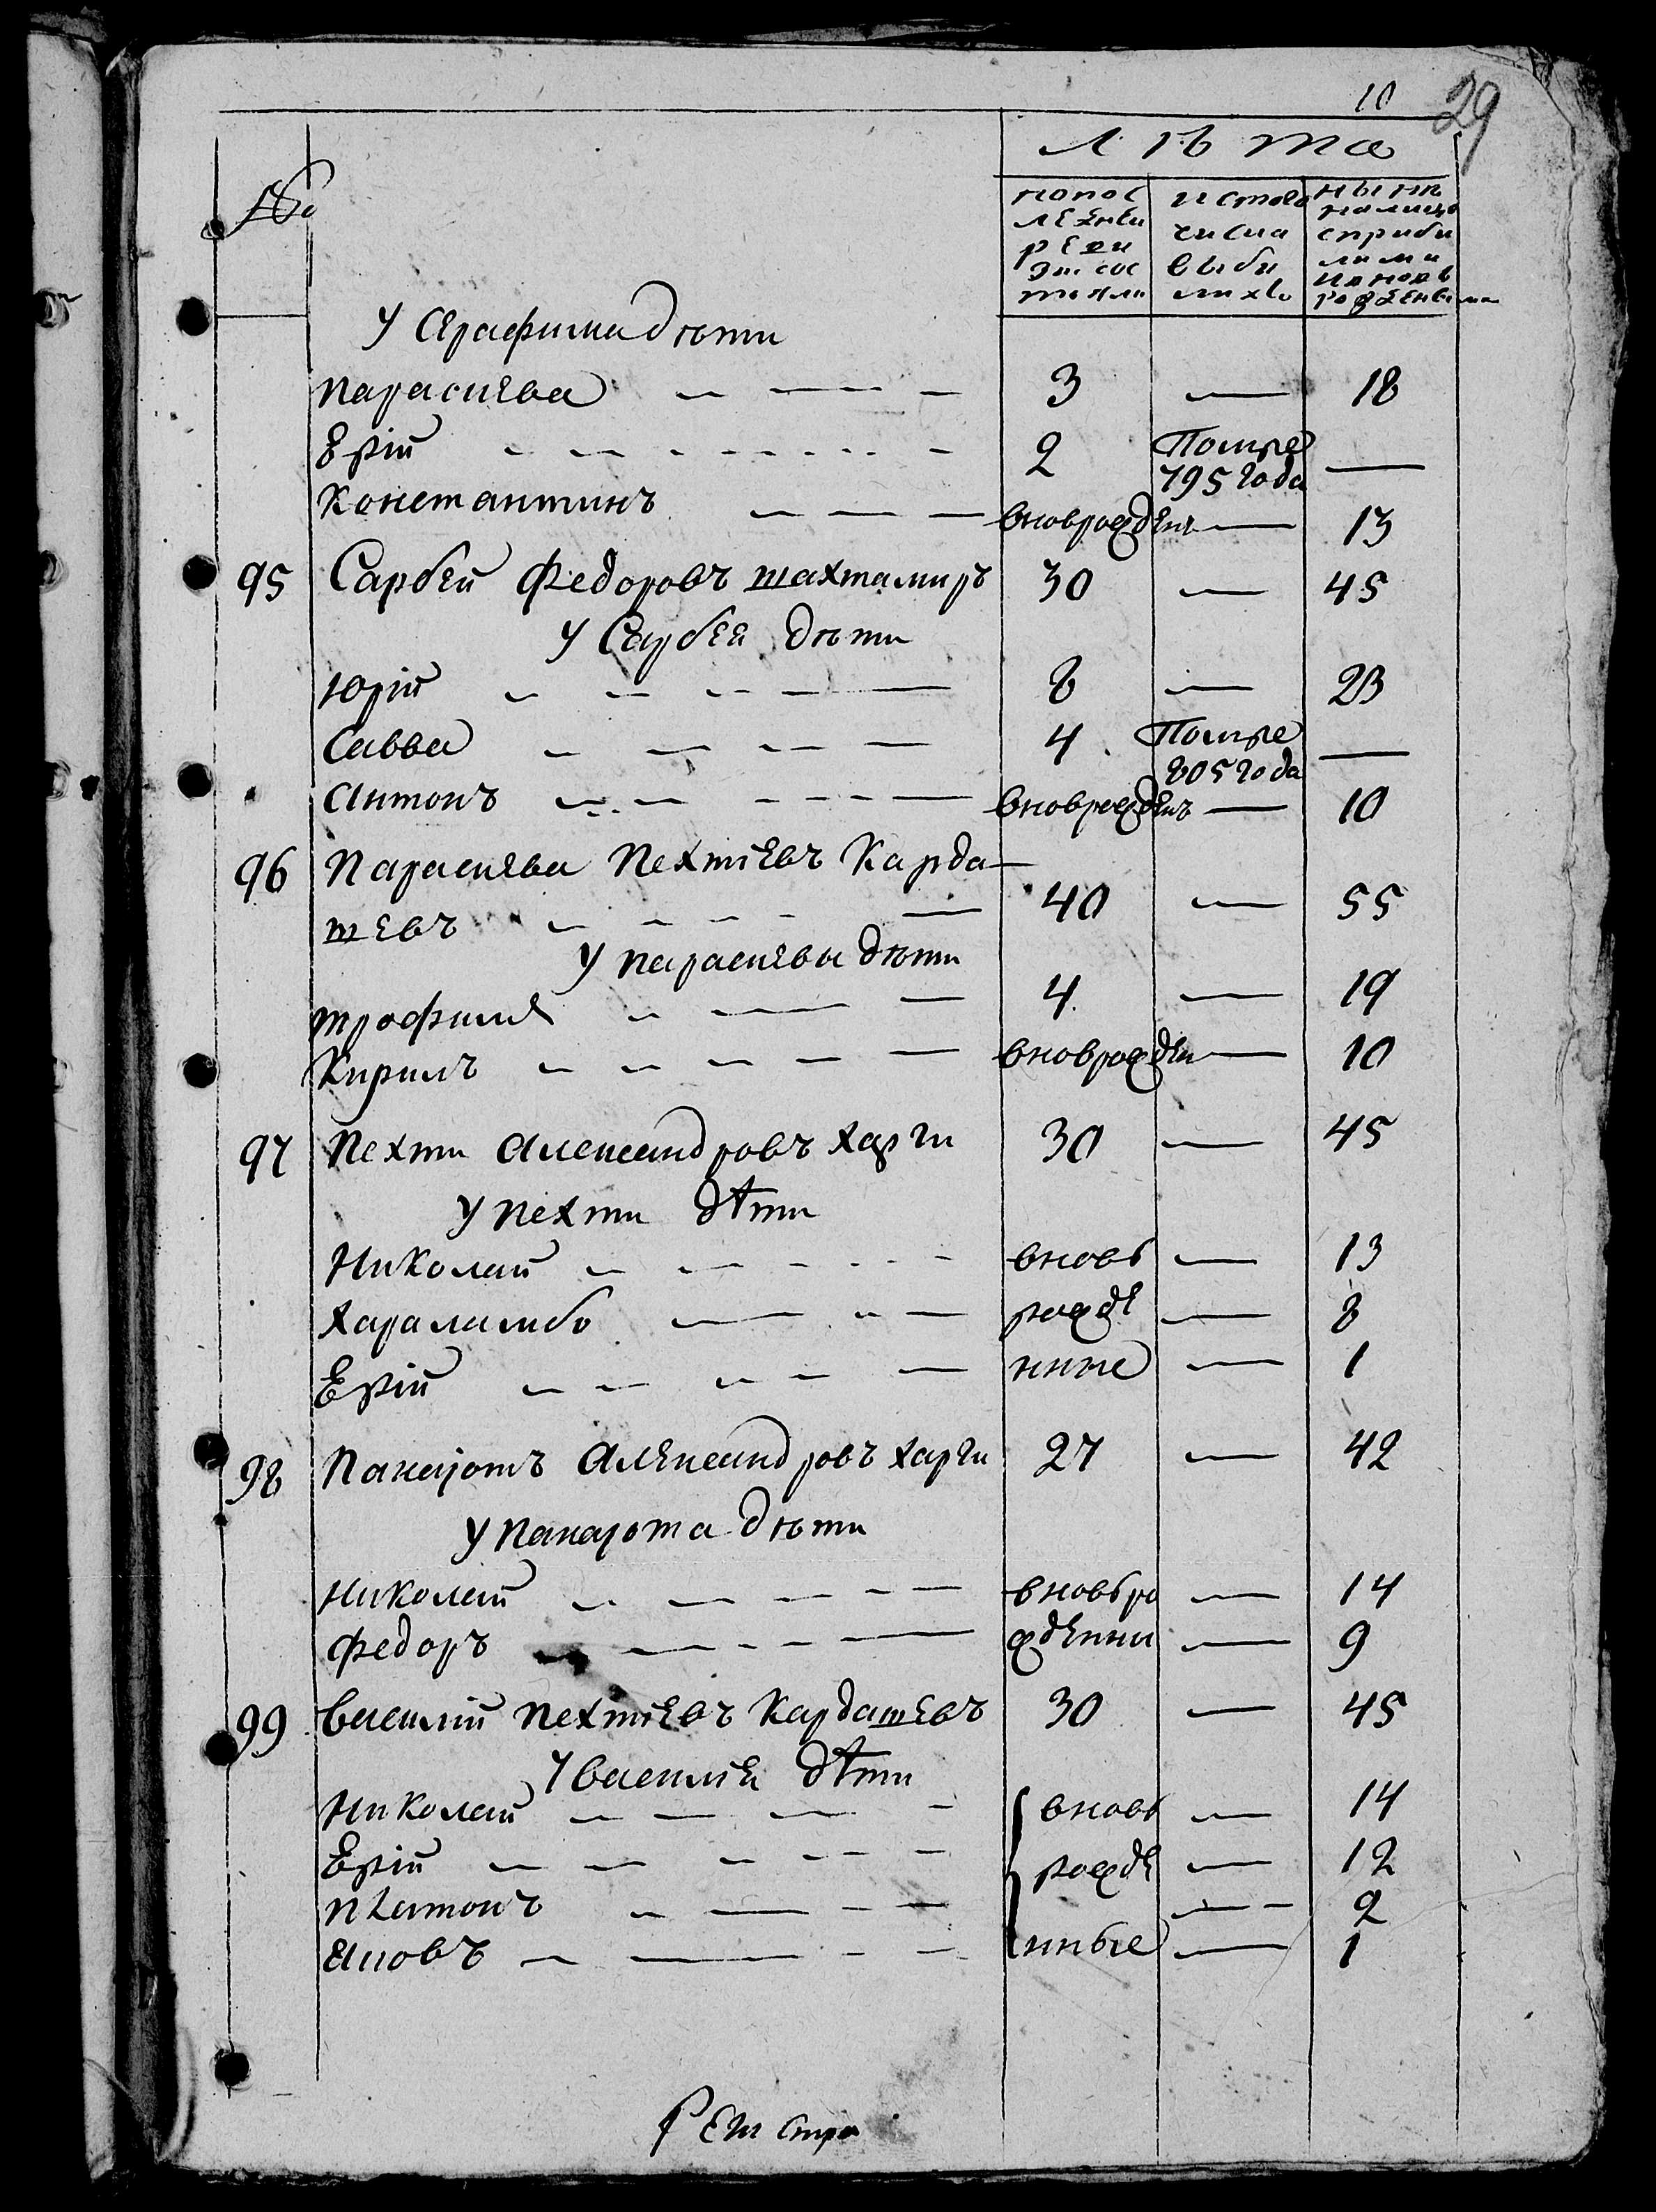 10
29
Лѣта
№
попос
лѣдней
реви
зіи сос
тояли
истого
числа
выбы
лихъ
нынѣ
налицо
сприбы
лыми
ивновь
рожденными
У Серафима дѣти
Параскева 3 — 18
Ерій 2 Помре 795 года —
Константинъ вновьрожденъ — 13
95 Сарбей Федоровъ шахтамиръ 30 — 45
У Сарбея дѣти
Юрій 8 — 23
Савва 4 Помре 805 года —
Антонъ вновьрожденъ — 10
96 Параскева Пехтіевъ Карда
шевъ 40 — 55
У Параскевы дѣти
трофимъ 4 — 19
Кирилъ вновьрожден — 10
97 Пехти Александровъ харги 30 — 45
У Пехти дѣти
Николай вновь — 13
Хараламбо рожде — 8
Ерій нные — 1
98 Панаіотъ Александровъ харги 27 — 42
У Панаіота дѣти
Николай вновьро — 14
Федоръ жденни — 9
99 Василій Пехтіевъ Кардашевъ 30 — 45
У Василія дѣти
Николай вновь — 14
Ерій рожде — 12
Платонъ — 2
Яковъ нные — 1